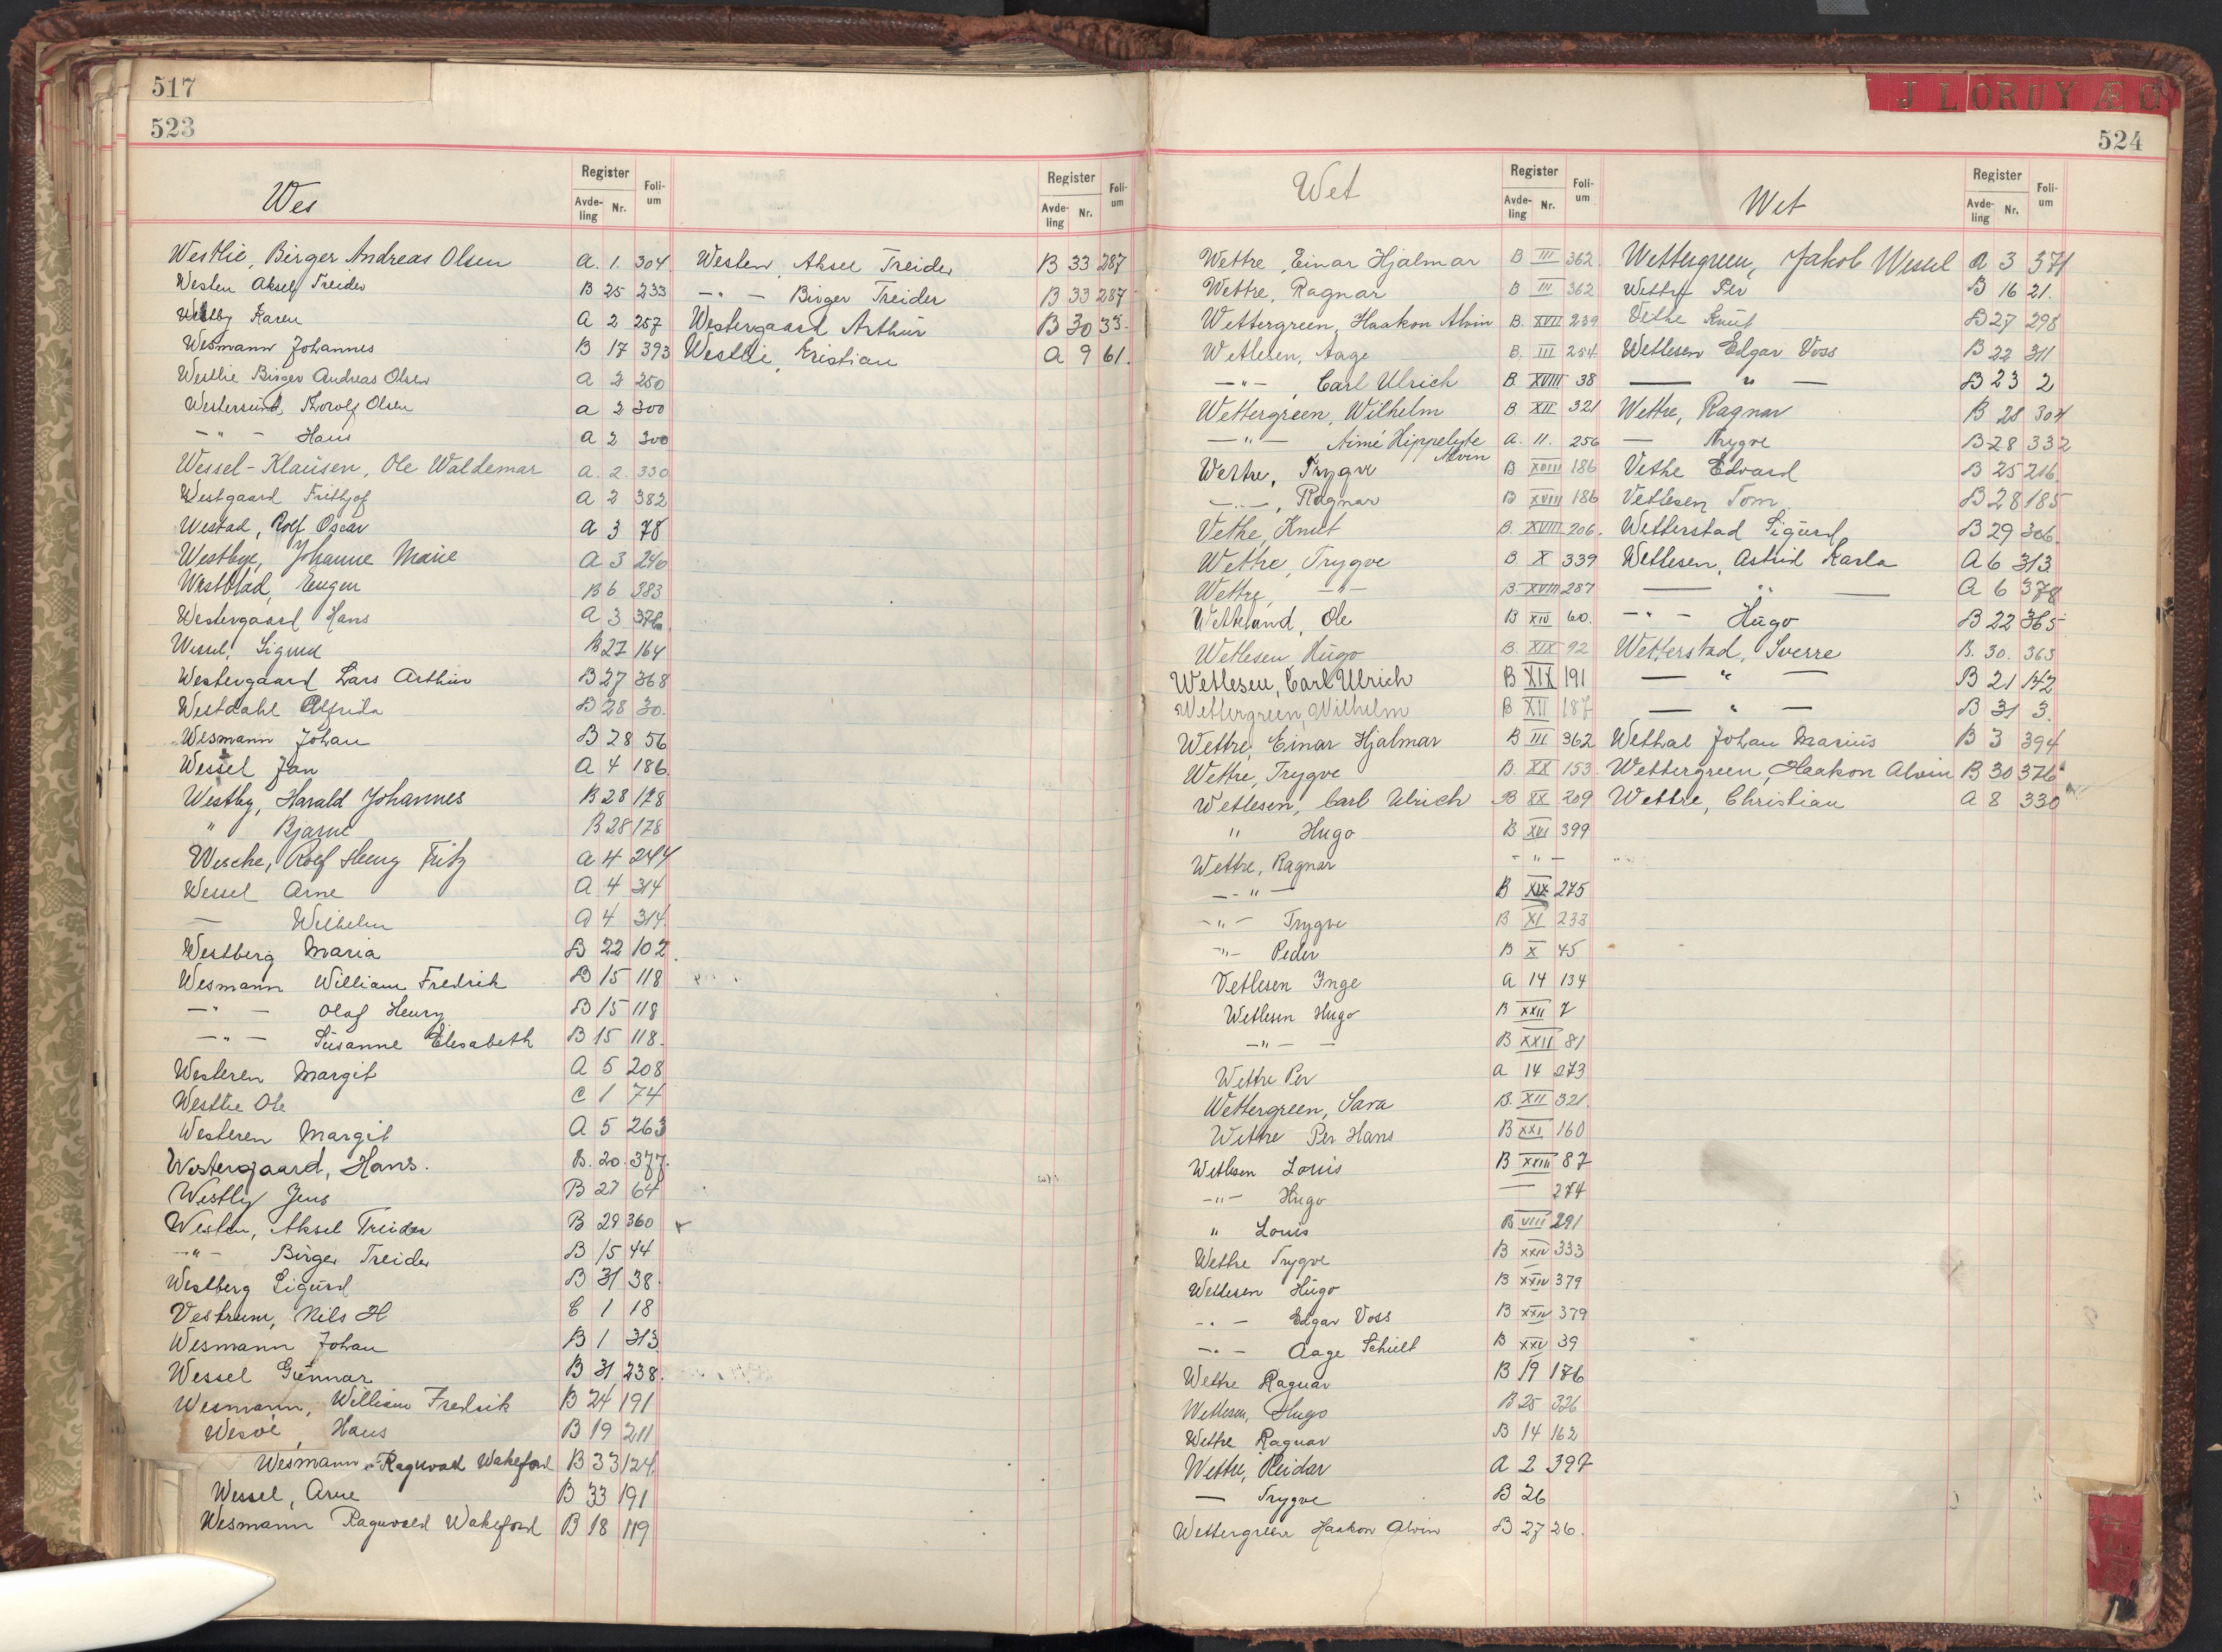 517
523
Wes
Register
Avde-
ling
Nr.
Foli-
um
Westlie, Birger Andreas Olsen A. 1. 304
Westen Aksel Treider B 25 233
Karen A 2 257
Wesmann Johannes B 17 393
Westlie Birger Andreas Olsen A 2 250
Westersund, Thorolf Olsen A 2 300
— " — Hans A 2 300
Wessel-Klausen, Ole Waldemar A. 2. 330
Westgaard Frithjof A 2 382
Westad, Rolf Oscar A 3 78
Westbye, Johanne Marie A 3 240
Westblad, Eugen B 6 383
Westergaard Hans A 3 376
Wessel, Sigurd B 27 164
Westergaard Lars Arthur B 27 368
Westdahl Alfrida B 28 30.
Wesmann Johan B 28 56
Wessel Jan A 4 186
Westby, Harald Johannes B 28 178
" Bjarne B 28 178
Wesche, Rolf Henry Fritz A 4 244
Wessel Arne A 4 314
— Wilhelm A 4 314
Westberg Maria B 22 102
Wesmann William Fredrik B 15 118
— " — Olaf Henry B 15 118
— " — Susanne Elisabeth B 15 118.
Westeren Margit A 5 208
Westlie Ole C 1 74
Westeren Margit A 5 263
Westergaard, Hans. B. 20. 377.
Westly Jens B 27 64
Westen, Aksel Treider B 29 360
— " — Birger Treider B 15 44
Westberg Sigurd B 31 38.
Vestrum, Nils H C 1 18
Wesmann Johan B 1 313
Wessel Gunnar B 31 238.
Wesmann, William Fredrik B 24 191
Wesoe, Hans B 19 211
Wesmann, Ragnvald Wakeford B 33 124
Wessel, Arne B 33 191
Wesmann Ragnvald Wakeford B 18 119
Register
Avde-
ling
Nr.
Foli-
um
Westen, Aksel Treider B 33 287
— " — Birger Treider B 33 287
Westergaard Arthur B 30 33.
Westlie, Kristian A 9 61.
J L ORUY Æ Ø
524
Wet
Register
Avde-
ling
Nr.
Foli-
um
Wettre, Einar Hjalmar B III 362
Wettre, Ragnar B III 362
Wettergreen, Haakon Alvin B. XVII 239
Wetlesen, Aage B. III 254
— " — , Carl Ulrich B. XVIII 38
Wettergreen, Wilhelm B XII 321
— " — Aimé Hippelyte Alvin A. 11. 256
Wettre, Trygve B XVIII 186
— " —, Ragnar B XVIII 186
Vethe, Knut B. XVIII 206.
Wettre, Trygve B X 339
Wettre, — " — B. XVIII 287
Wetteland, Ole B XIV 60.
Wetlesen Hugo B. XIX 92
Wetlesen, Carl Ulrich B XIX 191
Wettergreen, Wilhelm B XII 187
Wettre, Einar Hjalmar B III 362
Wettre, Trygve B. XX 153
Wetlesen, Carl Ulrich B XX 209
" Hugo B XVI 399
Wettre, Ragnar — " —
— " — B XIX 275
— " — Trygve B XI 233
— " — Peder B X 45
Vetlesen Inge A 14 134
Wetlesen Hugo B XXII 7
— " — B XXII 81
Wettre Per A 14 273
Wettergreen, Sara B. XII 321.
Wettre Per Hans B XXI 160
Wetlesen Louis B XXIII 87
— " — Hugo — 274
" Louis B VIII 291
Wettre Trygve B XXIV 333
Wetlesen Hugo B XXIV 379
— " — Edgar Voss B XXIV 379
— " — Aage Schielt B XXV 39
Wettre Ragnar B 19 176
Wetlesen, Hugo B 25 326
Wettre Ragnar B 14 162
Wettre, Reidar A 2 397
— Trygve B 26
Wettergreen Haakon Alvin B 27 26.
Wet
Register
Avde-
ling
Nr.
Foli-
um
Wettergreen, Jakob Wessel A 3 371
Wettre Per B 16 21.
Vethe Knut B 27 298
Wetlesen Edgar Voss B 22 311
— " — B 23 2
Wettre, Ragnar B 28 304
— Trygve B 28 332
Vethe Edvard B 25 216.
Vetlesen Tom B 28 185
Wetterstad Sigurd B 29 306.
Wetlesen, Astrid Karla A 6 313
— " — A 6 378
— " — Hugo B 22 365
Wetterstad, Sverre B. 30. 363
— " — B 21 142
— " — B 31 3.
Wethal Johan Marius B 3 394
Wettergreen, Haakon Alvin B 30 376
Wettre, Christian A 8 330